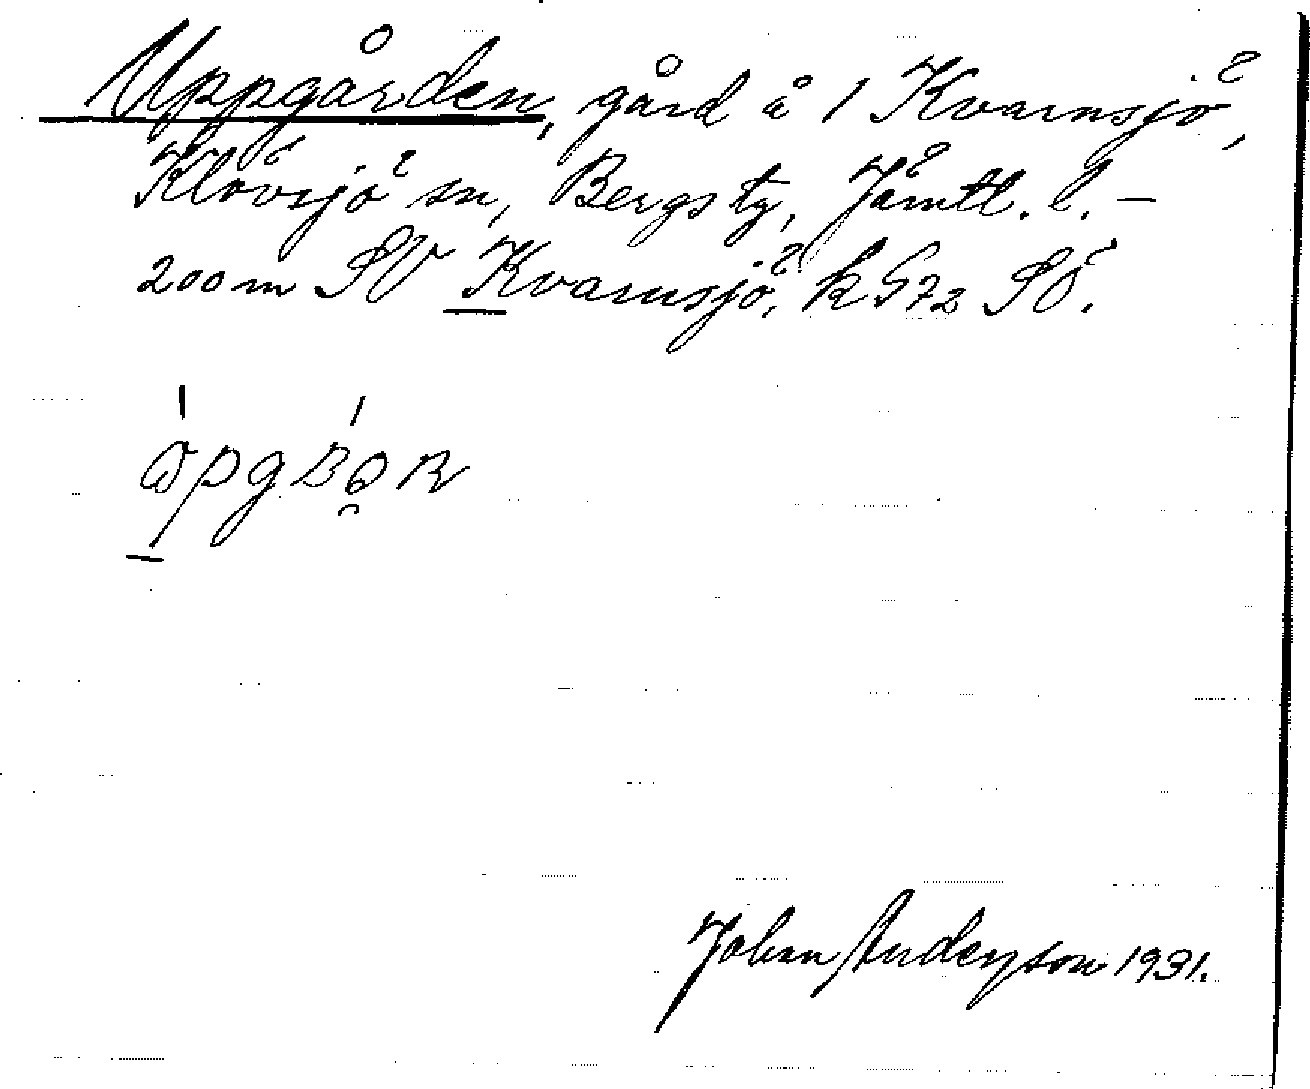 Uppgården, gård å 1 Kvarnsjö,
Klövsjö sn, Bergs tg, Jämtl. l. —
200 m SV Kvarnsjö, k 572 SÖ.
Johan Anderson 1931.